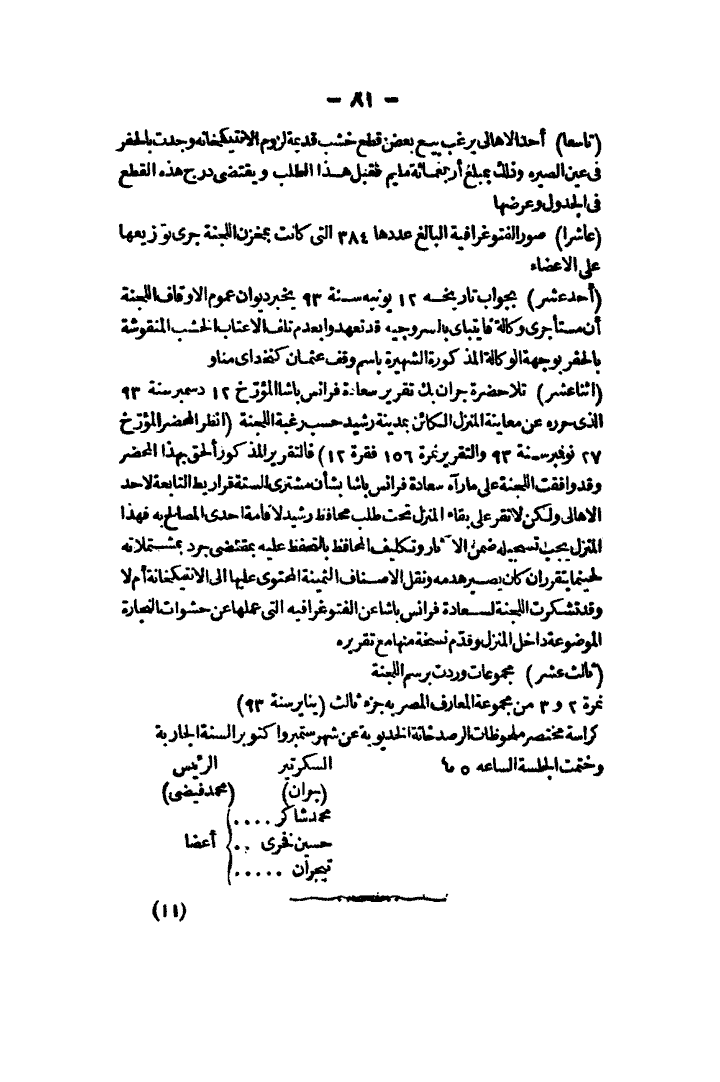 — ٨١ —
(تاسعا) أحد الاهالى يرغب بيع بعض قطع خشب قديمة لزوم الانتيكخانه وجدت بالحفر
فى عين الصيره وذلك بمبلغ أربعمائة مليم فقبل هذا الطلب ويقتضى درج هذه القطع
فى الجدول وعرضها
(عاشرا) صور الفتوغرافية البالغ عددها ٣٨٤ التى كانت بمخزن اللجنة جرى توزيعها
على الاعضاء
(أحد عشر) بجواب تاريخه ١٢ يونيه سنة ٩٣ يخبر ديوان عموم الاوقاف اللجنة
أن مستأجرى وكالة قايتباى بالسروجيه قد تعهدوا بعدم تلف الاعتاب الخشب المنقوشة
بالحفر بوجهة الوكالة المذكورة الشهيرة باسم وقف عثمان كتخداى مناو
(اثنا عشر) تلا حضرة جران بك تقرير سعادة فرانس باشا المؤرّخ ١٢ دسمبر سنة ٩٣
الذى حرره عن معاينة المنزل الكائن بمدينة رشيد حسب رغبة اللجنة (انظر المحضر المؤرّخ
٢٧ نوفمبر سنة ٩٣ والتقرير نمرة ١٥٦ فقرة ١٢) فالتقرير المذكور ألحق بهذا المحضر
وقد وافقت اللجنة على ما رآه سعادة فرانس باشا بشأن مشترى الستة قراريط التابعة لاحد
الاهالى ولكن لا تقر على بقاء المنزل تحت طلب محافظ رشيد لاقامة احدى المصالح به فهذا
المنزل يجب تسجيله ضمن الآثار وتكليف المحافظ بالتحفظ عليه بمقتضى جرد بمشتملاته
لحينما يتقرر ان كان يصير هدمه ونقل الاصناف الثمينة المحتوى عليها الى الانتيكخانة أم لا
وقد تشكرت اللجنة لسعادة فرانس باشا عن الفتوغرافيه التى عملها عن حشوات النجارة
الموضوعة داخل المنزل وقدّم نسخة منها مع تقريره
(ثالث عشر) مجموعات وردت برسم اللجنة
نمرة ٢ و ٣ من مجموعة المعارف المصريه جزء ثالث (يناير سنة ٩٣)
كراسة مختصر ملحوظات الرصدخانة الخديوية عن شهر ستمبر واكتوبر السنة الجارية
وختمت الجلسة الساعه ٥ السكرتير الرئيس
(جران) (محمد فيضى)
محمد شاكر ....
حسين فخرى .. أعضا
تيجران .....
(١١)